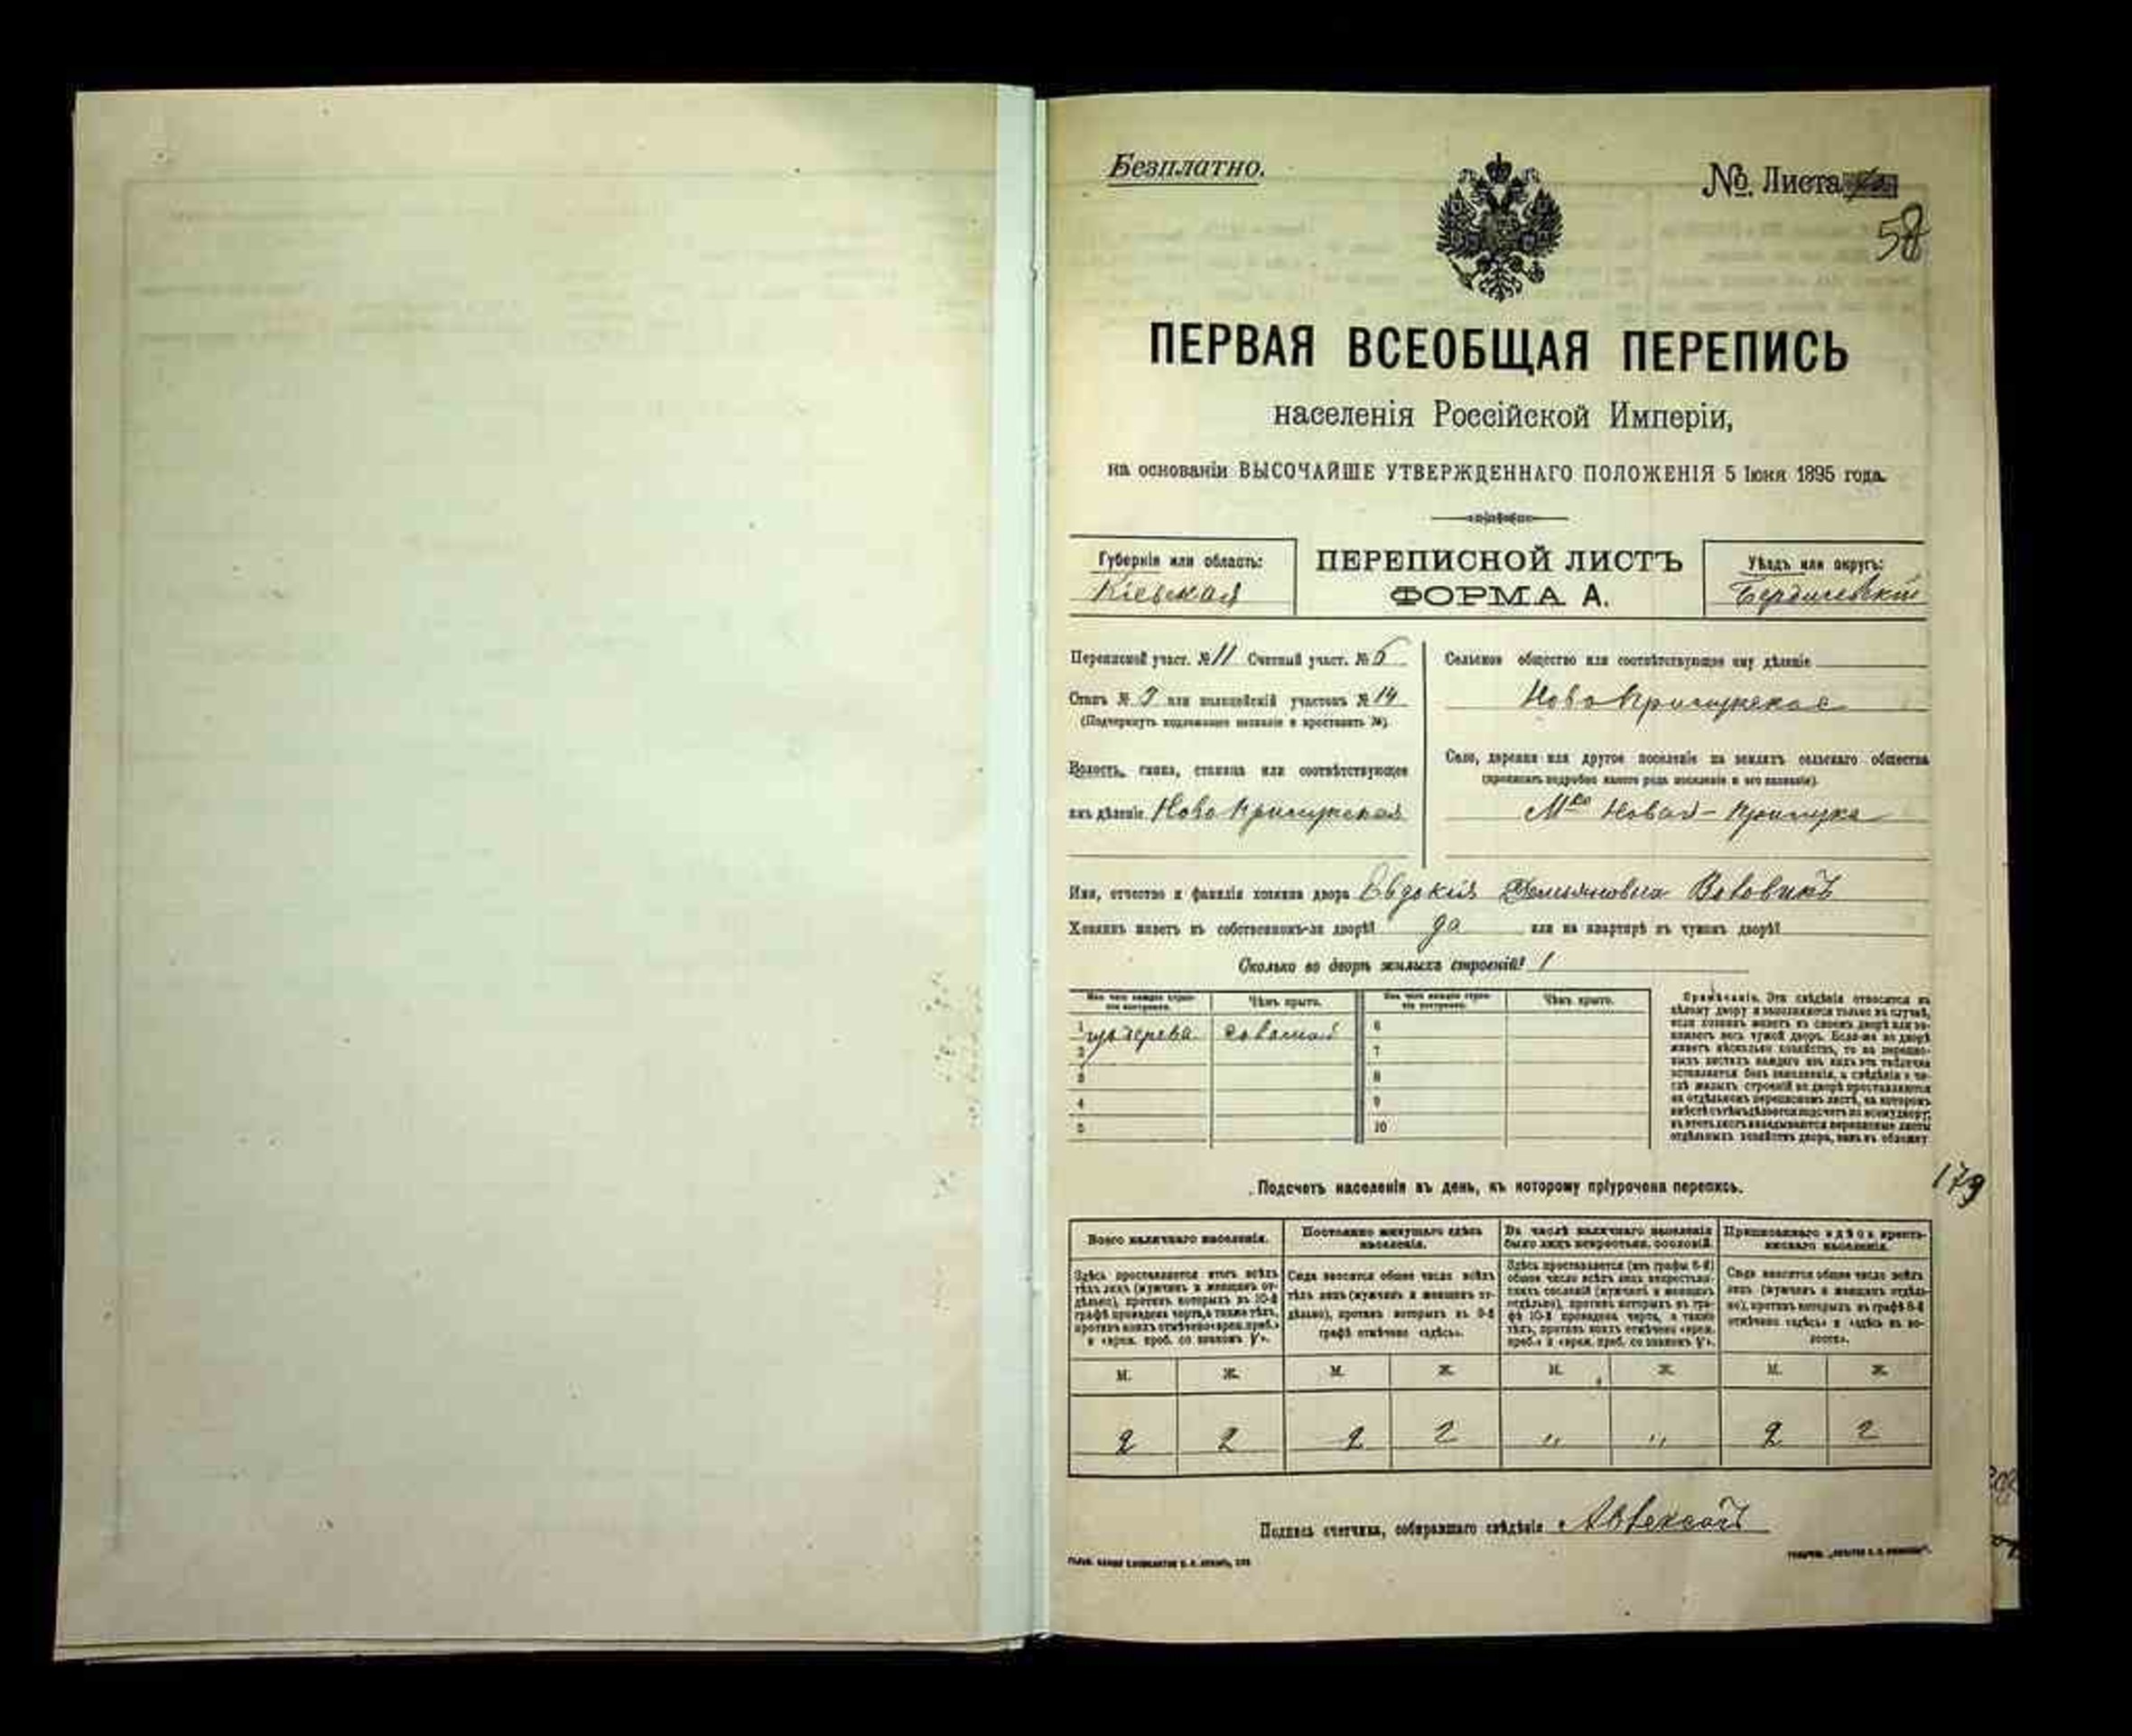 Безплатно.
№. Листа
58
ПЕРВАЯ ВСЕОБЩАЯ ПЕРЕПИСЬ
населенія Россійской Имперіи,
на основаніи ВЫСОЧАЙШЕ УТВЕРЖДЕННАГО ПОЛОЖЕНІЯ 5 Іюня 1895 года.
Губернія или область:
Кіевская
ПЕРЕПИСНОЙ ЛИСТЪ
ФОРМА А.
Уѣздъ или округъ:
Бердичевскій
Переписной участ. № 11 Счетный участ. № 5
Станъ № 3 или полицейскій участокъ № 14
(Подчеркнуть подлежащее названіе и проставить №).
Волость, гмина, станица или соотвѣтствующее
имъ дѣленіе Ново Прилукская
Сельское общество или соотвѣтствующее ему дѣленіе
Ново Прилукское
Село, деревня или другое поселеніе на земляхъ сельскаго общества
(прописать подробно какого рода поселеніе и его названіе).
М-ко Новая-Прилука
Имя, отчество и фамилія хозяина двора Евдокія Демьяновна Вововикъ
Хозяинъ живетъ въ собственномъ-ли дворѣ? да или на квартирѣ въ чужомъ дворѣ?
Сколько во дворѣ жилыхъ строеній? 1
Изъ чего каждое строеніе построено.
Чѣмъ крыто.
Изъ чего каждое строеніе построено.
Чѣмъ крыто.
1 изъ дерева соломой 6
2 7
3 8
4 9
5 10
Примѣчаніе. Эти свѣдѣнія относятся къ
цѣлому двору и заполняются только въ случаѣ,
если хозяинъ живетъ въ своемъ дворѣ или за-
нимаетъ весь чужой дворъ. Если-же во дворѣ
живетъ нѣсколько хозяйствъ, то на перепис-
ныхъ листахъ каждаго изъ нихъ эта табличка
оставляется безъ заполненія, а свѣдѣнія о чи-
слѣ жилыхъ строеній во дворѣ проставляются
на отдѣльномъ переписномъ листѣ, на которомъ
вмѣстѣ съ тѣмъ дѣлается подсчетъ по всему двору;
въ этотъ листъ вкладываются переписные листы
отдѣльныхъ хозяйствъ двора, какъ въ обложку
179
Подсчетъ населенія въ день, къ которому пріурочена перепись.
Всего наличнаго населенія.
Постоянно живущаго здѣсь населенія.
Въ числѣ наличнаго населенія было лицъ некрестьян. сословій.
Приписаннаго здѣсь крестьянскаго населенія.
Здѣсь проставляется итогъ всѣхъ
тѣхъ лицъ (мужчинъ и женщинъ от-
дѣльно), противъ которыхъ въ 10-й
графѣ проведена черта, а также тѣхъ,
противъ коихъ отмѣчено «врем. преб.»
и «врем. проб. со знакомъ V».
Сюда вносится общее число всѣхъ
тѣхъ лицъ (мужчинъ и женщинъ от-
дѣльно), противъ которыхъ въ 9-й
графѣ отмѣчено «здѣсь».
Здѣсь проставляется (изъ графы 6-й)
общее число всѣхъ лицъ некрестьян-
скихъ сословій (мужчинъ и женщинъ
отдѣльно), противъ которыхъ въ гра-
фѣ 10-й проведена черта, а также
тѣхъ, противъ коихъ отмѣчено «врем.
преб.» и «врем. проб. со знакомъ V».
Сюда вносится общее число всѣхъ
лицъ (мужчинъ и женщинъ отдѣль-
но), противъ которыхъ въ графѣ 8-й
отмѣчено «здѣсь» и «здѣсь въ во-
лости».
М. Ж. М. Ж. М. Ж. М. Ж.
2 2 2 2 " " 2 2
Подпись счетчика, собиравшаго свѣдѣнія